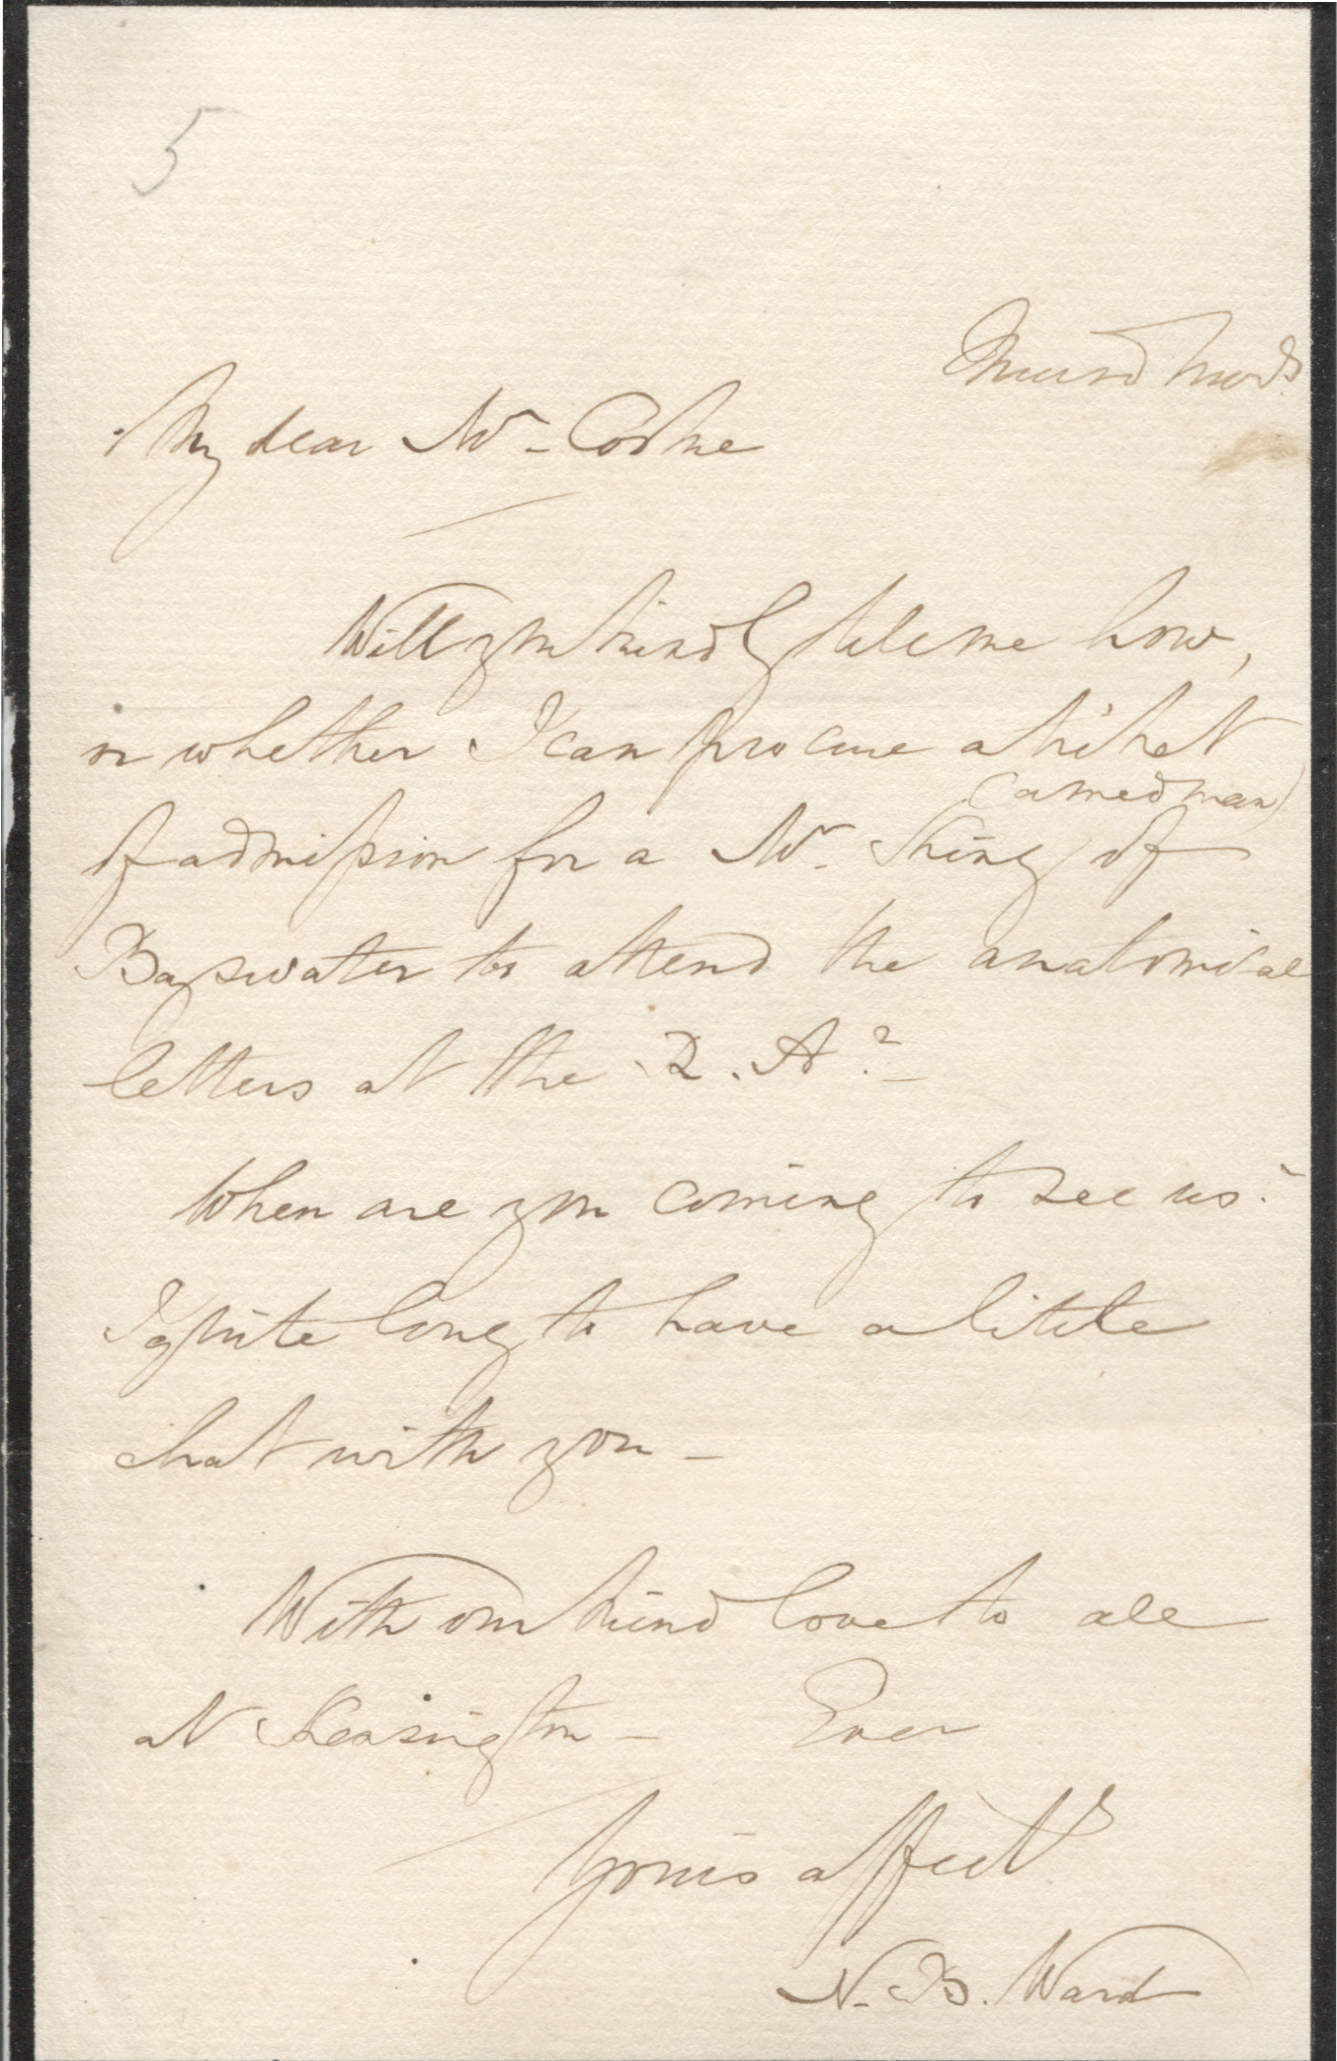 5
My dear Mr- Cooke
Will you kindly tell me how,
or whether I can procure a ticket
(a med man)
of admission for a Mr. King of
Bayswater to attend the anatomical
letters at the R. A.?
When are you coming to see us?
I quite long to have a little
chat with you -
With our kind love to all
at Kensington - Ever
Yours affect
N. B. Ward